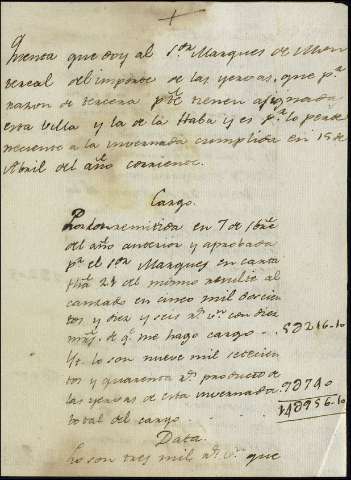 +
Cuenta que doy al Sor Marques de Mon
rreal del importe de las yervas, que pr
razon de tercera pte tienen asignadas
esta Villa y la de la Haba y es pr lo perte
neciente a la invernada cumplida en 15 de
Abril del año corriente.
Cargo.
remitida en 7 de
del año anterior y aprobada
pr el Sor Marques en carta
21 del mismo resulté al
canzado en cinco mil doscien
tos y diez y seis rs vn con diez
mrs de qe me hago cargo - - 5D216..10
Yt. lo son nueve mil setecien
tos y quarenta rs producto de
las yervas de esta invernada 9D740
total del cargo - - - 14D956..10
Data.
Lo son tres mil rs vn que